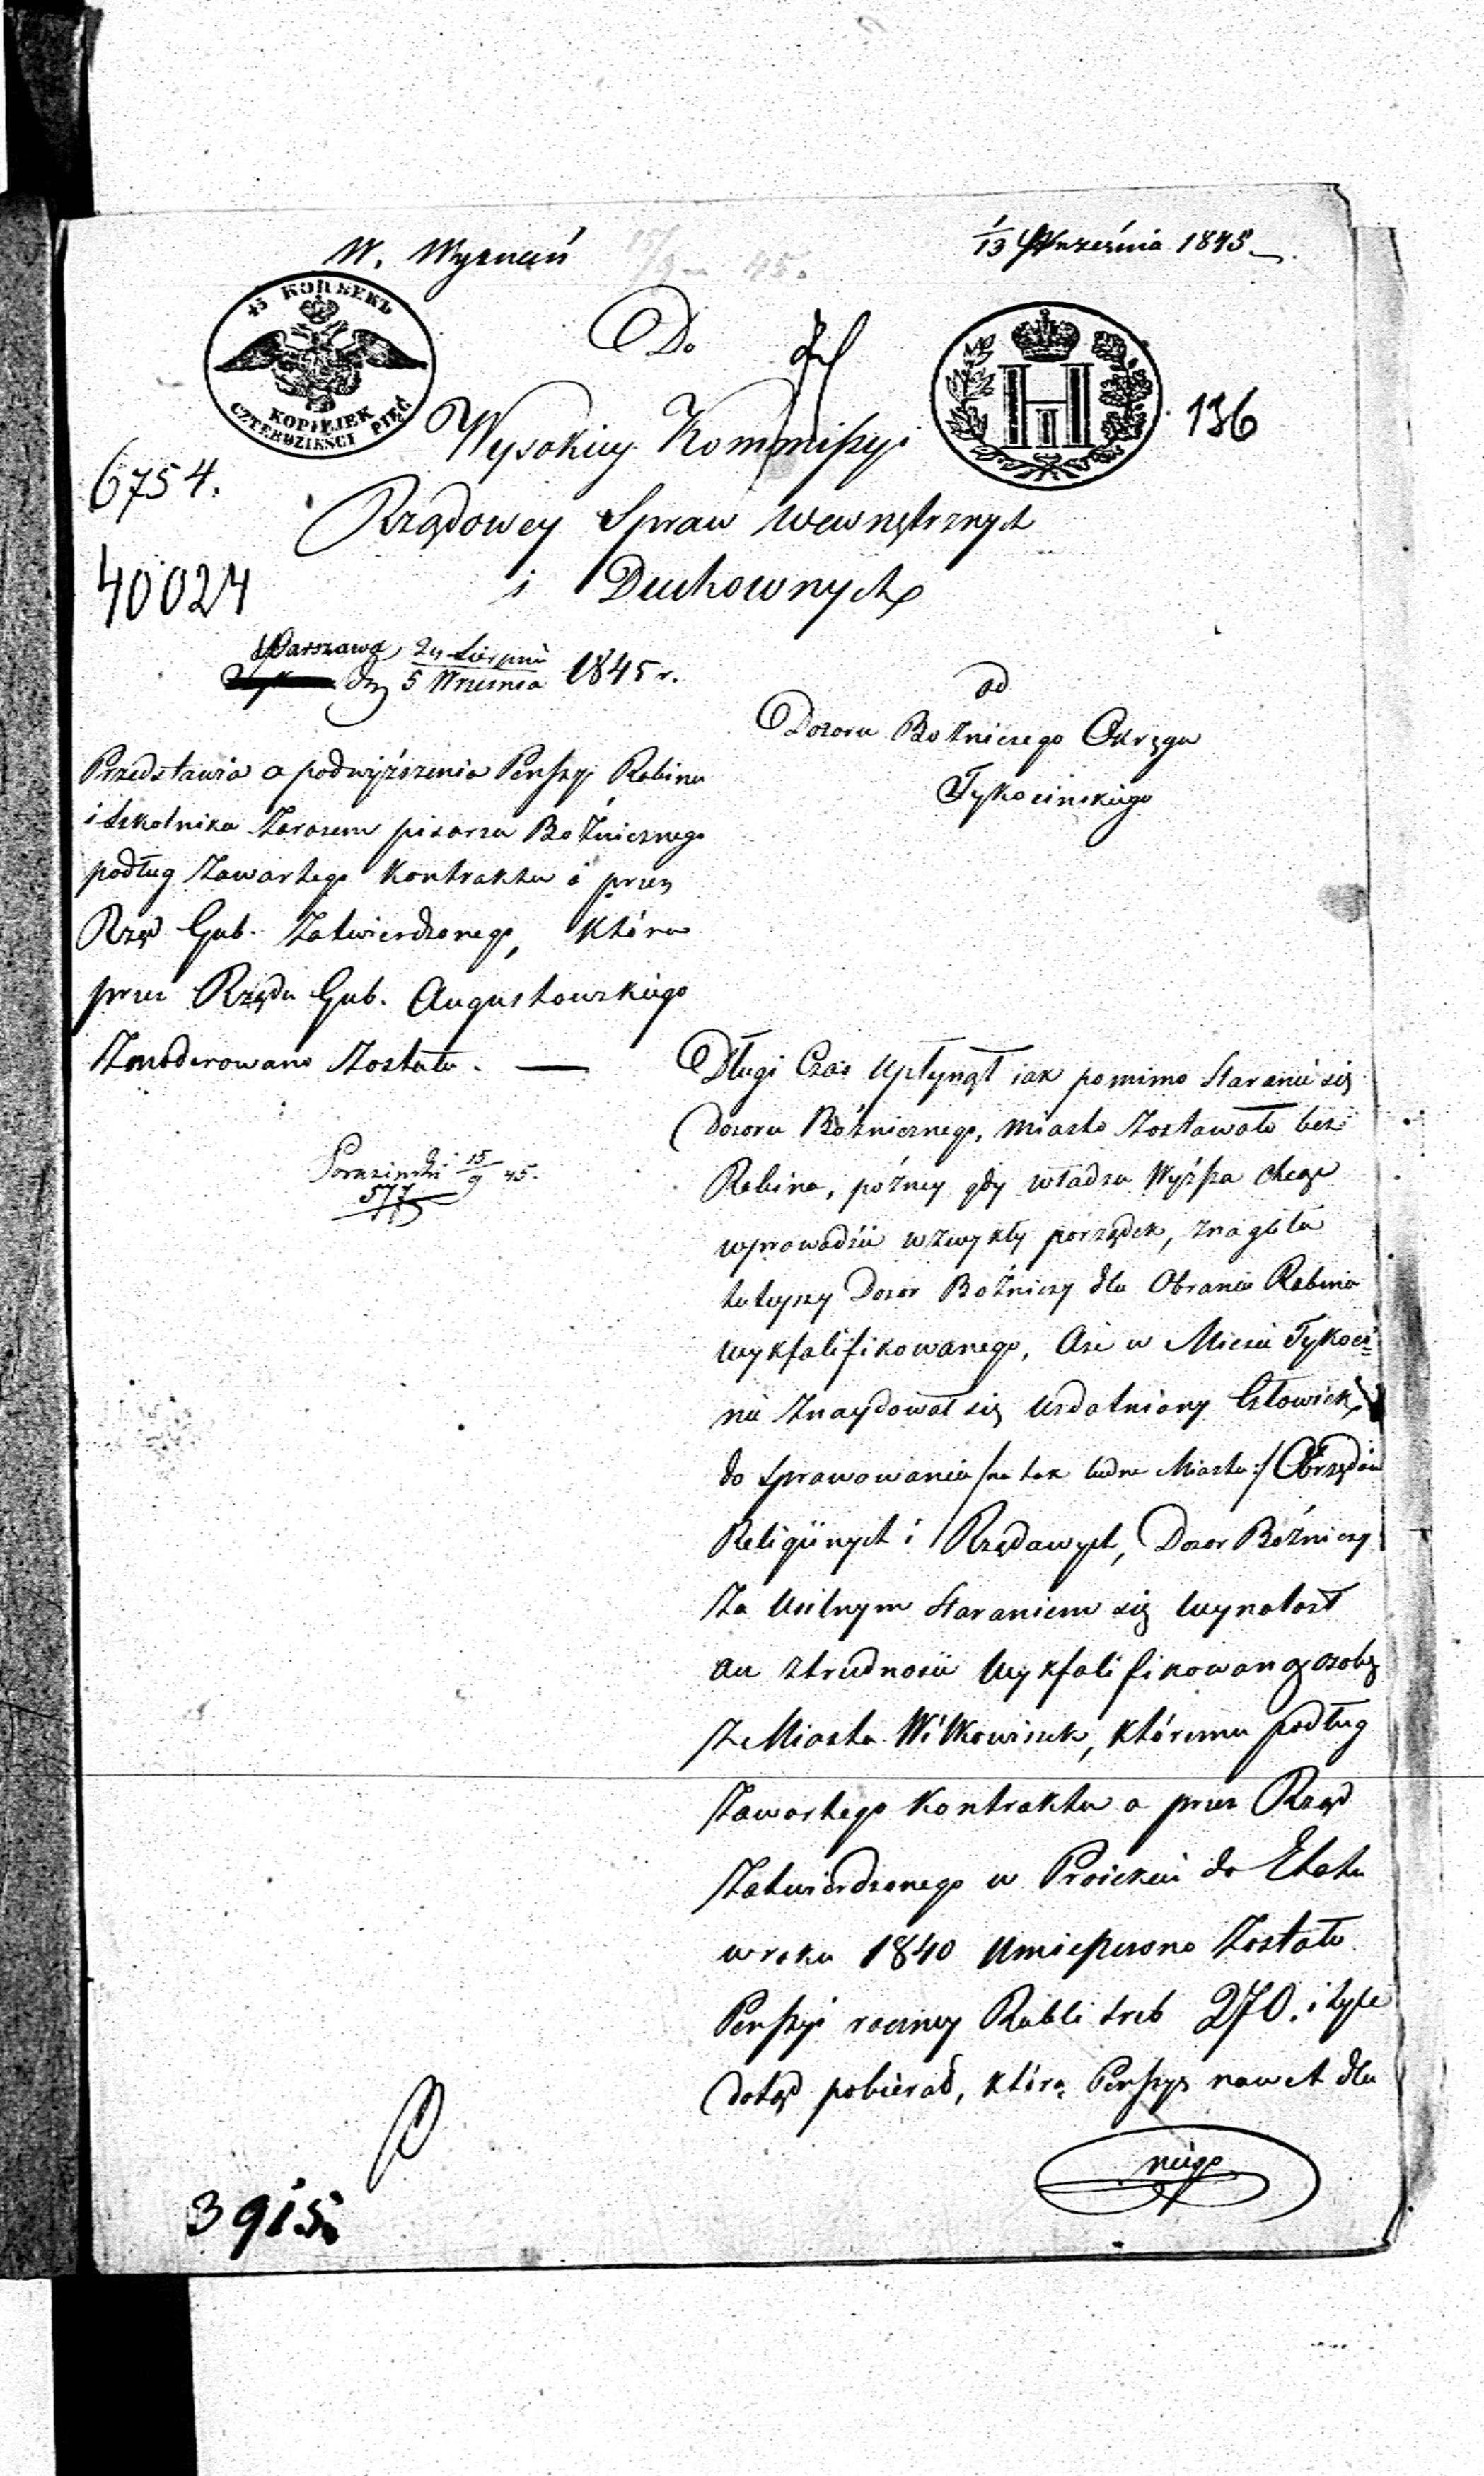 W. Wyznań
1/13 Września 1845
15/9 45.
45 КОПѢЕКЪ
KOPIEJEK
CZTERDZIEŚCI PIĘĆ
Do
136
Wysokiey Kommissyi
6754.
Rządowey Spraw Wewnętrznych
40024
i Duchownych
Warszawa 24 Sierpnia
5 Września 1845 r.
od
Dozoru Bożniczego Okręgu
Tykocińskiego
Przedstawia o podwyższenia Penssyi Rabina
i Szkolnika Zarazem pisarza Bożnicznego
podług Zawartego Kontraktu i przez
Rząd Gub. Zatwierdzonego, która
przez Rządu Gub. Augustowskiego
Zmoderowano Została. —
15/9 45.
577
Długi Czas Upłynął iak pomimo Starania się
Dozoru Bóżnicznego, miasto Zostawało bez
Rabina, późney gdy władza Wyższa chcąc
wprowadzić w Zwykły porządek, znagliła
tuteyszy Dozor Bożniczy dla Obrania Rabina
wykfalifikowanego, Aże w Mieście Tykoci=
nie Znaydował się Uzdatniony Człowiek
do Sprawowania /na tak ludne Miasto:/ Obrzędów
Religiinych i Rządowych, Dozor Bóżniczy
Za Usilnym Staraniem się Wynalazł
z trudnością Wykfalifikowaną osobę
Z Miasta Wiłkowiszek, któremu podług
Zawartego Kontraktu a przez Rząd
Zatwierdzonego w Proiekcie do Etatu
w roku 1840 Umieszczono Zostało
Penssyi roczney Rubli sreb 270. i tyle
dotąd pobierał, którą Penssyę nawet dla
niego
3915.